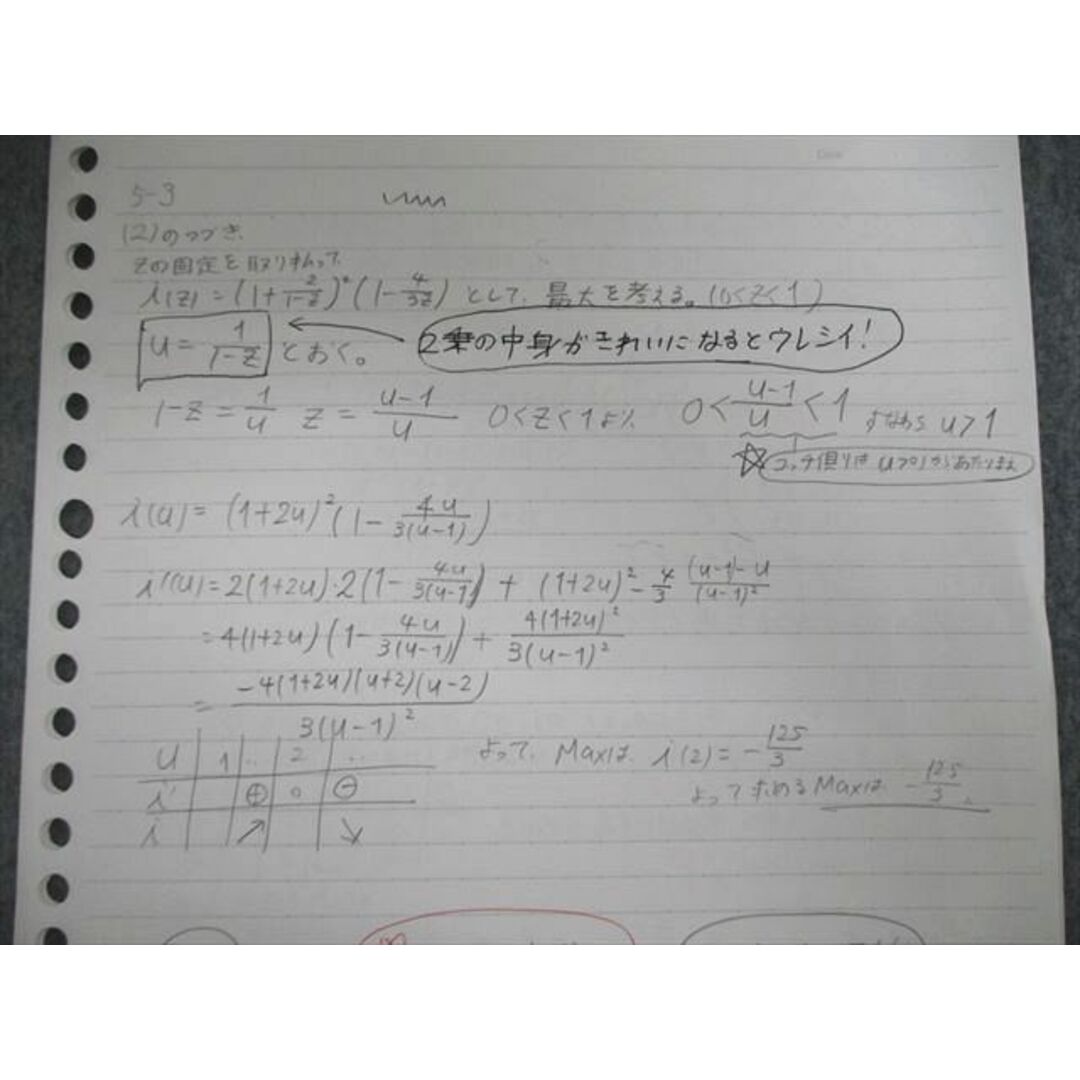 Date
5-3
(2)のつづき
zの固定を取り払って
i(z) = (1+2/(1-z))²(1-4/(3z)) として、最大を考える。(0<z<1)
u = 1/(1-z) とおく。 ← 2乗の中身がきれいになるとウレシイ!
1-z = 1/u z = (u-1)/u 0<z<1より 0<(u-1)/u<1 すなわち u>1
☆コッチ側は u>0だからあたりまえ
i(u) = (1+2u)²(1-4u/(3(u-1)))
i'(u) = 2(1+2u)·2(1-4u/(3(u-1))) + (1+2u)² -4/3 ((u-1)-u)/(u-1)²
= 4(1+2u)(1-4u/(3(u-1))) + 4(1+2u)²/(3(u-1)²)
= -4(1+2u)(u+2)(u-2)/(3(u-1)²)
u 1 ‥ 2 ‥ よって、Maxは、i(2) = -125/3
i' ⊕ 0 ⊖ よって求めるMaxは -125/3
i ↗ ↘